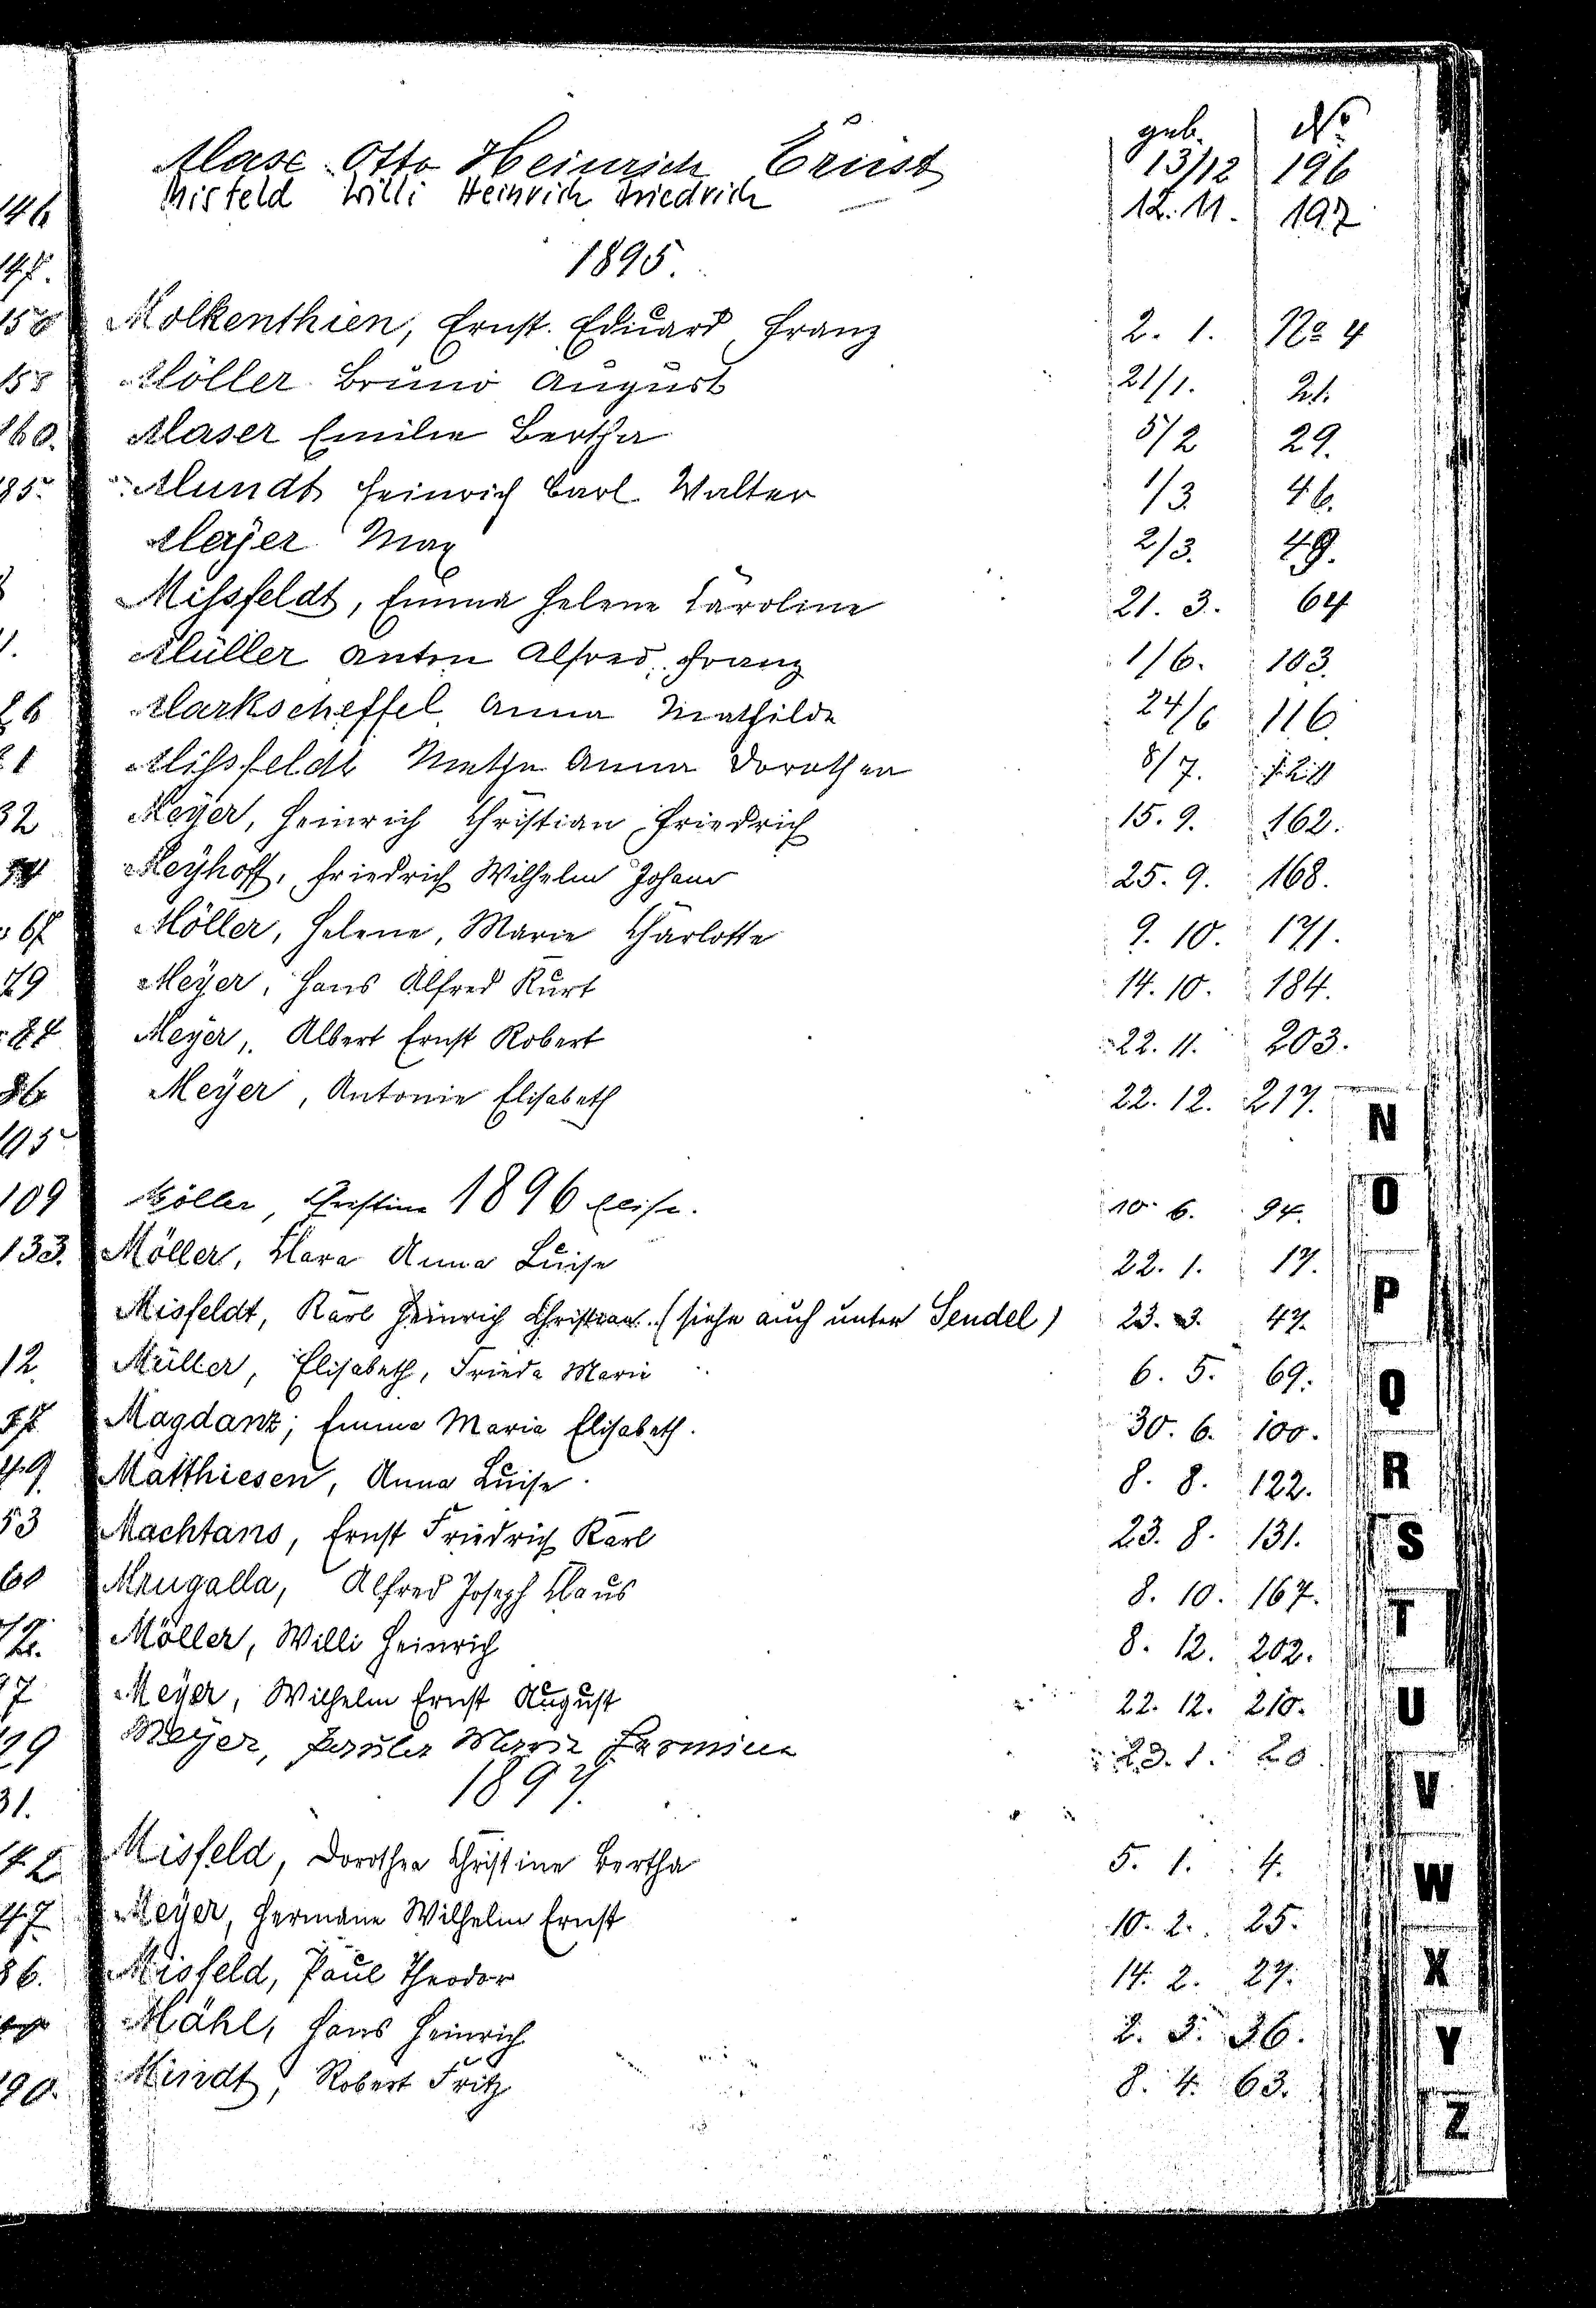 geb. No
Mase Otto Heinrich Ernst 13/12 196
Misfeld Willi Heinrich Friedrich 12. 11. 197
1895.
Molkenthien, Ernst Eduard Franz 2. 1. No 4
Möller Bruno August 21/1. 21.
Maser Emilie Bertha 5/2 29.
Mundt Heinrich Carl Walter 1/3 46.
Mayer Max 2/3. 49.
Missfeldt, Emma Helene Caroline 21. 3. 64
Müller Anton Alfred Franz 1/6. 103.
Markscheffel Anna Mathilde 24/6 116.
Missfeldt Metha Anna Dorothea 8/7.
Meyer, Heinrich Christian Friedrich 15. 9. 162.
Meyhoff, Friedrich Wilhelm Johann 25. 9. 168.
Möller, Helene, Marie Charlotte 9. 10. 171.
Meyer, Hans Alfred Kurt 14. 10. 184.
Meyer, Albert Ernst Robert 22. 11. 203.
Meyer, Antonie Elisabeth 22. 12. 217.
1896
Möller, Christine Elise. 10. 6. 94.
Möller, Klara Anna Luise 22. 1. 17.
Misfeldt, Karl Heinrich Christian. (siehe auch unter Sendel) 23. 3. 47.
Müller, Elisabeth, Frieda Marie 6. 5. 69.
Magdanz, Emma Maria Elisabeth. 30. 6. 100.
Matthiesen, Anna Luise 8. 8. 122.
Machtans, Ernst Friedrich Karl 23. 8. 131.
Mrugalla, Alfred Joseph Klaus 8. 10. 167.
Möller, Willi Heinrich 8. 12. 202.
Meyer, Wilhelm Ernst August 22. 12. 210.
Meyer, Marie Hermine 23. 1. 20
1897.
Misfeld, Dorothea Christine Bertha 5. 1. 4.
Meyer, Hermann Wilhelm Ernst 10. 2. 25.
Misfeld, Paul Theodor 14. 2. 27.
Mähl, Hans Heinrich 2. 3. 36.
Mindt, Robert Fritz 8. 4. 63.
N
O
P
Q
R
S
T
U
V
W
X
Y
Z